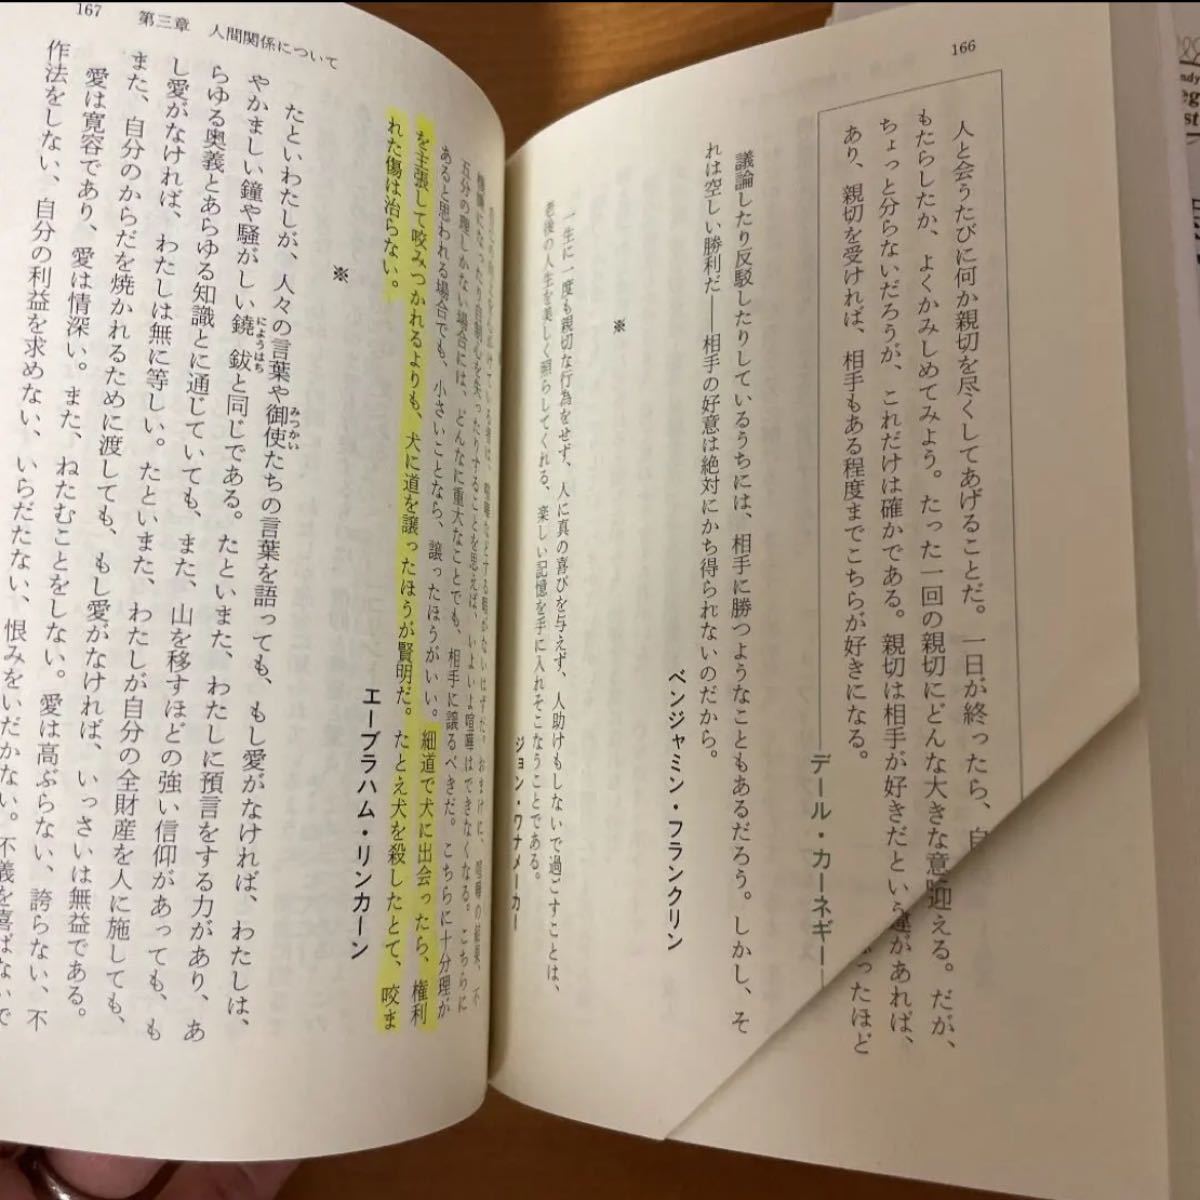 166
人と会うたびに何か親切を尽くしてあげることだ。一日が終ったら、自
もたらしたか、よくかみしめてみよう。たった一回の親切にどんな大きな意
迎える。だが、
ちょっと分らないだろうが、これだけは確かである。親切は相手が好きだという
があれば、
あり、親切を受ければ、相手もある程度までこちらが好きになる。
ったほど
デール・カーネギー
議論したり反駁したりしているうちには、相手に勝つようなこともあるだろう。しかし、そ
れは空しい勝利だ――相手の好意は絶対にかち得られないのだから。
ベンジャミン・フランクリン
※
一生に一度も親切な行為をせず、人に真の喜びを与えず、人助けもしないで過ごすことは、
老後の人生を美しく照らしてくれる、楽しい記憶を手に入れそこなうことである。
ジョン・ワナメーカー
167
第三章 人間関係について
喧嘩などする暇がないはずだ。おまけに、喧嘩の結果、不
機嫌になったり自制心を失ったりすることを思えば、いよいよ喧嘩はできなくなる。こちらに
五分の理しかない場合には、どんなに重大なことでも、相手に譲るべきだ。こちらに十分理が
あると思われる場合でも、小さいことなら、譲ったほうがいい。細道で犬に出会ったら、権利
を主張して咬みつかれるよりも、犬に道を譲ったほうが賢明だ。たとえ犬を殺したとて、咬ま
れた傷は治らない。
エーブラハム・リンカーン
※
たといわたしが、人々の言葉や御使たちの言葉を語っても、もし愛がなければ、わたしは、
みつかい
やかましい鐘や騒がしい鐃鈸と同じである。たといまた、わたしに預言をする力があり、あ
にようはち
らゆる奥義とあらゆる知識とに通じていても、また、山を移すほどの強い信仰があっても、も
し愛がなければ、わたしは無に等しい。たといまた、わたしが自分の全財産を人に施しても、
また、自分のからだを焼かれるために渡しても、もし愛がなければ、いっさいは無益である。
愛は寛容であり、愛は情深い。また、ねたむことをしない。愛は高ぶらない、誇らない、不
作法をしない、自分の利益を求めない、いらだたない、恨みをいだかない。不義を喜ばないで